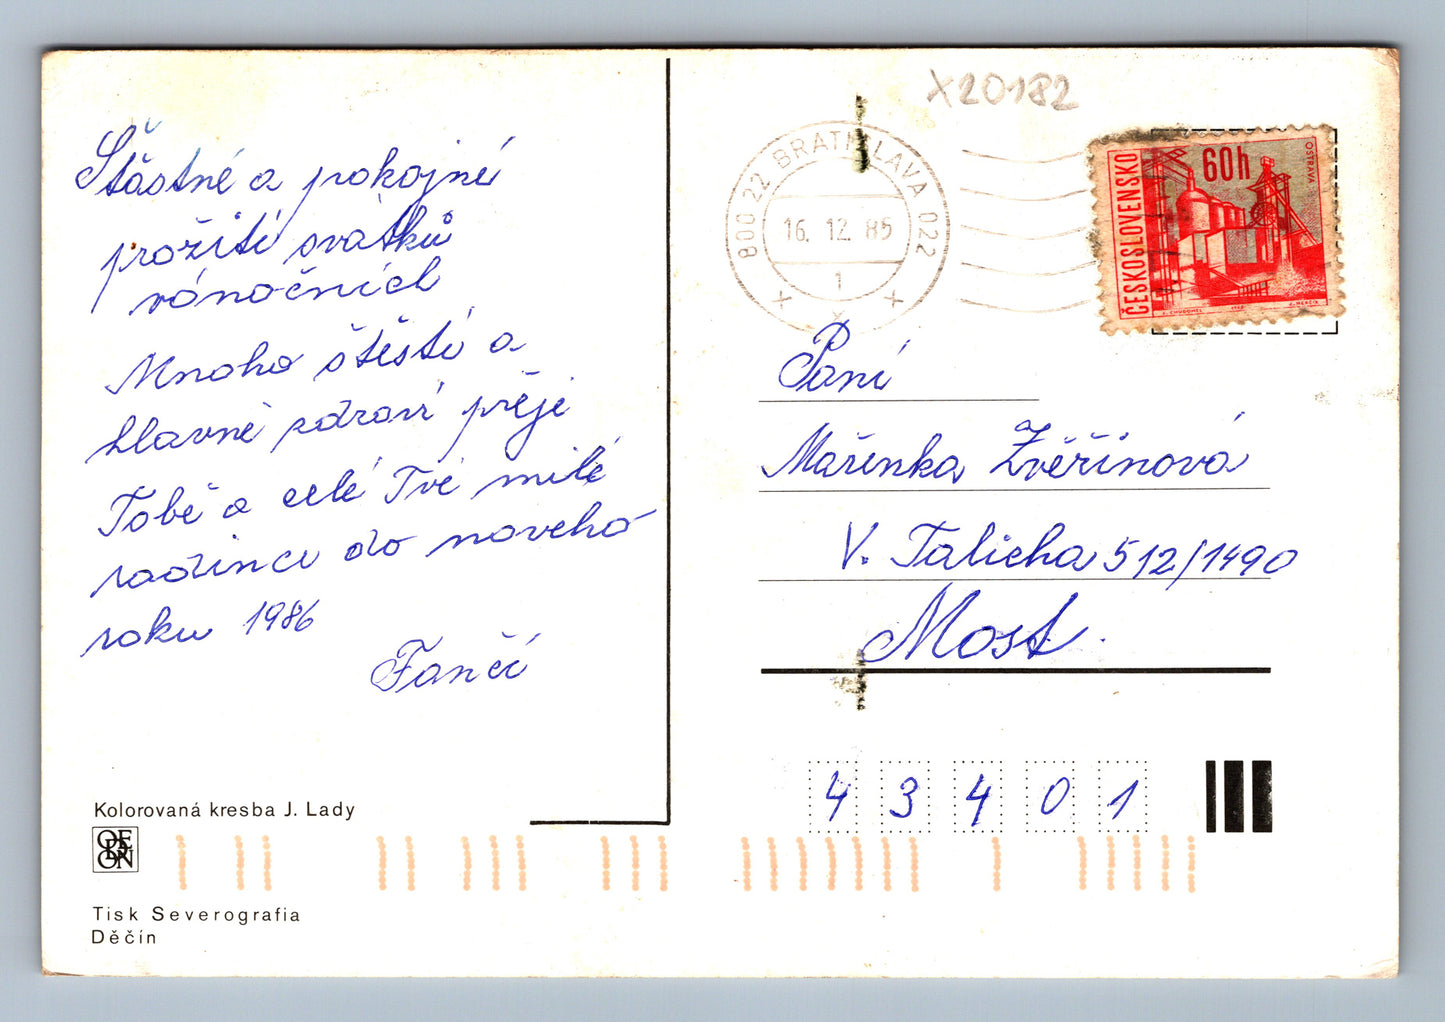 Šťastné a pokojné
prožití svátků
vánočních
Mnoho štěstí a
hlavně zdraví přeje
Tobě a celé Tvé milé
rodince do nového
roku 1986
Fančí
Kolorovaná kresba J. Lady
ODEON
Tisk Severografia
Děčín
X20182
800 22 BRATISLAVA 022
16. 12. 85
1
ČESKOSLOVENSKO
60h
OSTRAVA
Paní
Mařenka Zvěřinová
V. Talicha 512/1490
Most
43401